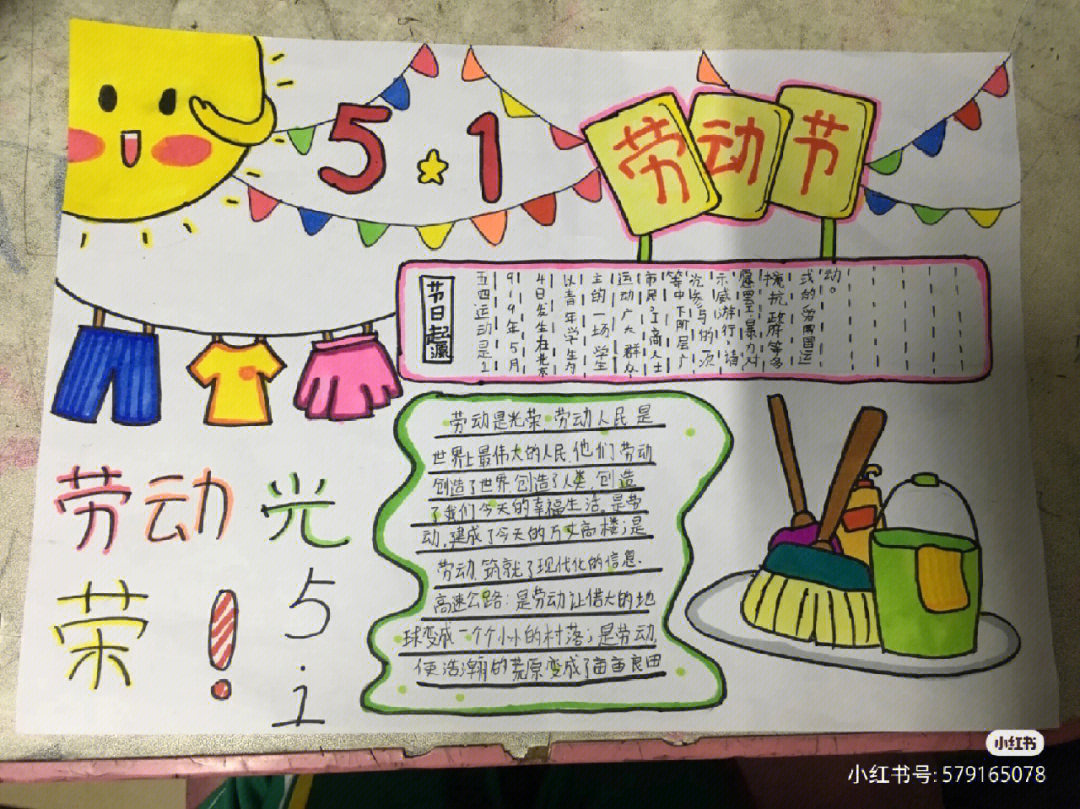 5 1
劳动节
节日起源
五四运动是1
919年5月
4日发生在北京
以青年学生为
主的一场学生
运动广大群众
市民工商人士
等中下阶层广
泛参与的一次
示威游行请
愿罢工暴力对
抗政府等多
式的国运
动。
劳动是光荣,劳动人民是
世界上最伟大的人民,他们劳动
创造了世界,创造了人类,创造
了我们今天的幸福生活,是劳
动,建成了今天的万丈高楼;是
劳动,筑就了现代化的信息.
高速公路:是劳动让偌大的地
球变成一个个小小的村落;是劳动,
使浩瀚的荒原变成了亩亩良田
劳动光
荣!
5.1
小红书
小红书号: 579165078